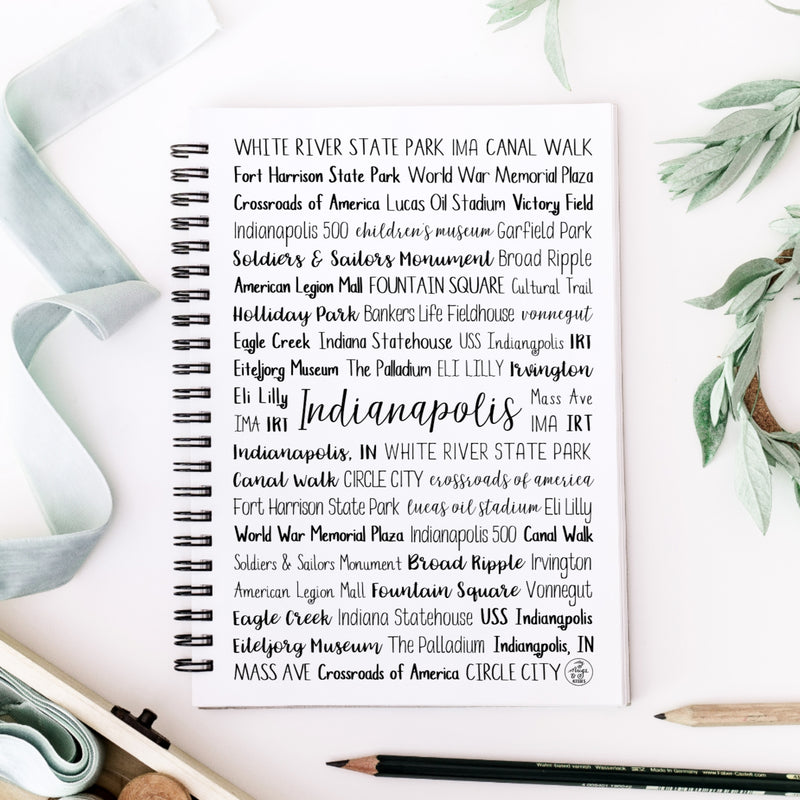 WHITE RIVER STATE PARK IMA CANAL WALK
Fort Harrison State Park World War Memorial Plaza
Crossroads of America Lucas Oil Stadium Victory Field
Indianapolis 500 children's museum Garfield Park
Soldiers & Sailors Monument Broad Ripple
American Legion Mall FOUNTAIN SQUARE Cultural Trail
Holliday Park Bankers Life Fieldhouse vonnegut
Eagle Creek Indiana Statehouse USS Indianapolis IRT
Eiteljorg Museum The Palladium ELI LILLY Irvington
Eli Lilly Indianapolis Mass Ave
IMA IRT IMA IRT
Indianapolis, IN WHITE RIVER STATE PARK
Canal Walk CIRCLE CITY crossroads of america
Fort Harrison State Park lucas oil stadium Eli Lilly
World War Memorial Plaza Indianapolis 500 Canal Walk
Soldiers & Sailors Monument Broad Ripple Irvington
American Legion Mall Fountain Square Vonnegut
Eagle Creek Indiana Statehouse USS Indianapolis
Eiteljorg Museum The Palladium Indianapolis, IN
MASS AVE Crossroads of America CIRCLE CITY
Made in Germany www.Faber-Castell.com